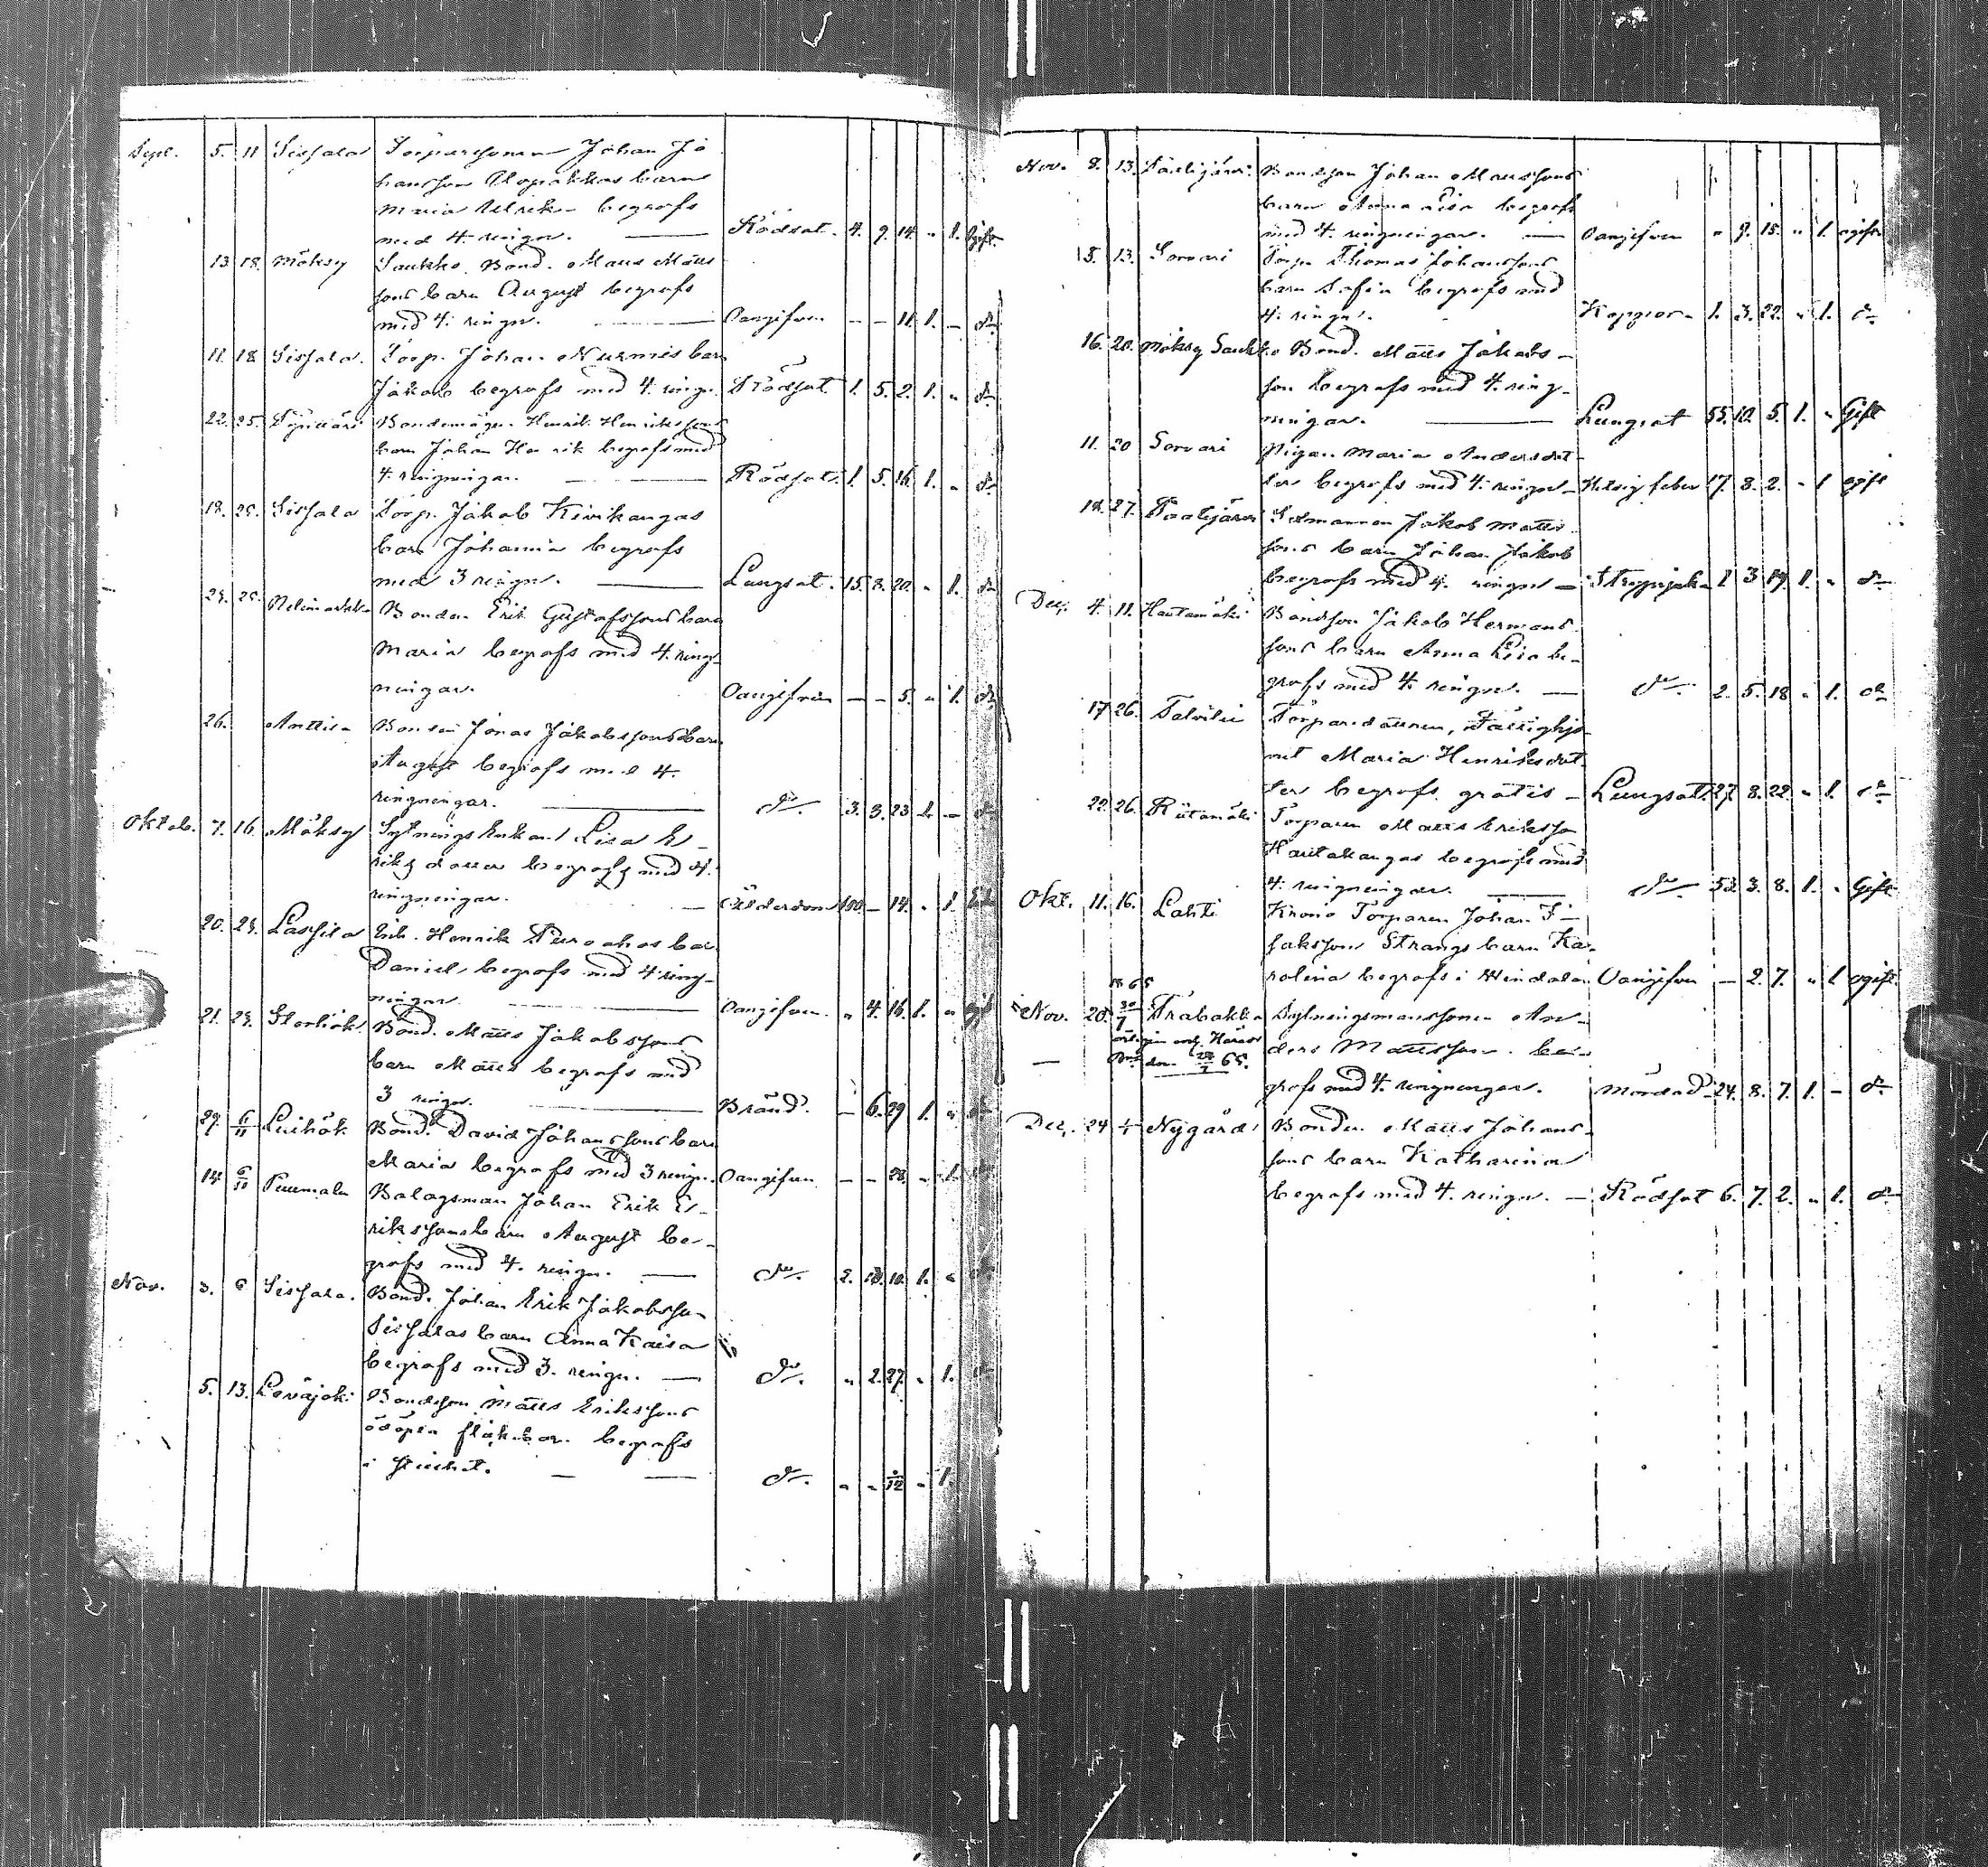 Sept. 5. 11 Sissala Torparesonen Johan Jo
hansson barn
Maria Ulrika begrofs
med 4. ringn. Rödsot. 4. 9. 14. " 1. Ogift
13 18. Möksy Saukko Bond. Matts Matts
sons barn August begrofs
med 4. ringn. Oangifven — — 11. 1. — do
11. 18 Sissala. Torp. Johan Nurmis barn
Jakob begrofs med 4. ringn. Rödsot 1. 5. 2. 1. " do
22. 25. Bondemågen Henrik Henrikssons
barn Johan Henrik begrofs med
4. ringningar. Rödsot. 1. 5. 16. 1. " do
18. 25. Sissala Torp. Jakob Kivikangas
barn Johanna begrofs
med 3 ringn. Lungsot. 15. 8. 20. " 1. do
Bonden Erik Gustafssons barn
Maria begrofs med 4. ring-
ningar. Oangifven — — 5. " 1. do
26. Anttila Bonden Jonas Jakobssons barn
August begrofs med 4.
ringningar. do 3. 3. 23 1. — do
Oktob. 7. 16. Möksy Sytningsenkan Lisa E-
riksdotter begrofs med 4.
ringningar. Ålderdom 100 — 14. " 1.
20. 23. Lassila Inh. Henrik barn
Daniel begrofs med 4 ring-
ningar Oangifven " 4. 16. 1. "
21. 23. Bond. Matts Jakobssons
barn Matts begrofs med
3 ringn. Bränd. — 6. 29 1. "
29. 6/11 Bond. David Johanssons barn
Maria begrofs med 3 ringn. Oangifven — — 28. " 1.
14. Bolagsman Johan Erik E-
rikssons barn August be-
grofs med 4. ringn. do 2. 10. 10. 1. "
Nov. 3. 6 Sissala. Bond. Johan Erik Jakobsson
Sissalas barn Anna Kaisa
begrofs med 3. ringn. do " 2. 27. " 1.
5. 13. Levijoki Bondeson Matts Erikssons
odöpta flickbarn begrofs
i stillhet. do " " " 1.
Nov. 8. 13. Bondson Johan Matssons
barn Anna Lisa begrofs
med 4. ringningar. Oangifven " 9. 15. " 1. ogift
5. 13. Sorvari Torp. Thomas Johanssons
barn Sofia begrofs med
4. ringn. Koppor 1. 3. 22. " 1. do
16. 20. Möksy Saukko Bond. Matts Jakobs-
son begrofs med 4. ring-
ningar. Lungsot 55. 10. 5. 1. " Gift
11. 20 Sorvari Pigan Maria Andersdot-
ter begrofs med 4. ringn. Hitsig feber 17. 8. 2. " 1 ogift
18. 27. Paalijärvi Sexmannen Jakob Matts-
sons barn Johan Jakob
begrofs med 4. ringn. Strypsjuka 1 3 19. 1. " do
Dec. 4. 11. Hautamäki Bondson Jakob Hermans-
sons barn Anna Lisa be-
grofs med 4. ringn. do 2. 5. 18 " 1. do
17 26. Torparedottren, Fattighjo-
net Maria Henriksdot-
ter begrofs gratis Lungsot. 27. 8. 22. " 1. do
22. 26. Riitamäki Torparen Matts Eriksson
Hautakangas begrofs med
4. ringningar. do 52. 3. 8. 1. " Gift
Okt. 11. 16. Lahti Krono Torparen Johan I-
saksson Strangs barn Ka-
rolina begrofs i Windala. Oangifven — 2. 7. " 1 ogift.
1865
Nov. 20. Träbakka Sytningsmanssonen An-
ders Mattsson be-
grofs med 4. ringningar. Mördad 24. 8. 7. 1. — do
Dec. 24 Nygård Bonden Matts Johans-
sons barn Katharina
begrofs med 4. ringn. Rödsot 6. 7. 2. " 1. do